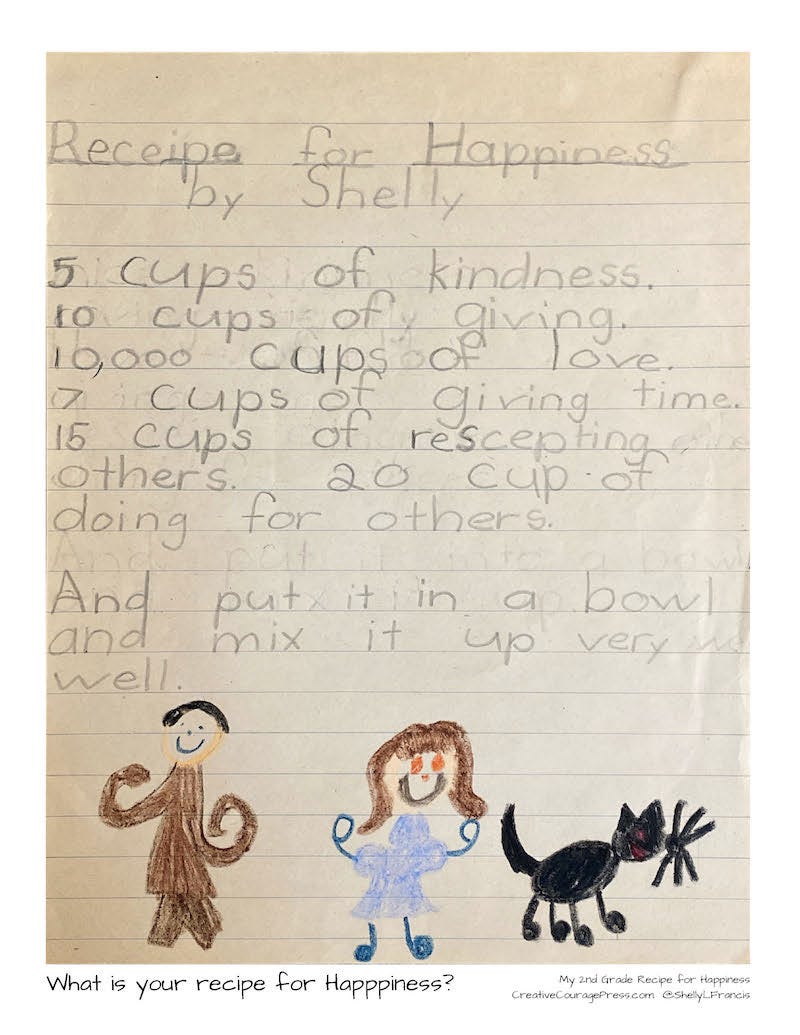 Receipe for Happiness
by Shelly
5 cups of kindness.
10 cups of giving.
10,000 cups of love.
7 cups of giving time.
15 cups of rescepting
others. 20 cup of
doing for others.
And put it into a bowl
And put it in a bowl
and mix it up very
well.
What is your recipe for Happpiness?
My 2nd Grade Recipe for Happiness
CreativeCouragePress.com @ShellyLFrancis